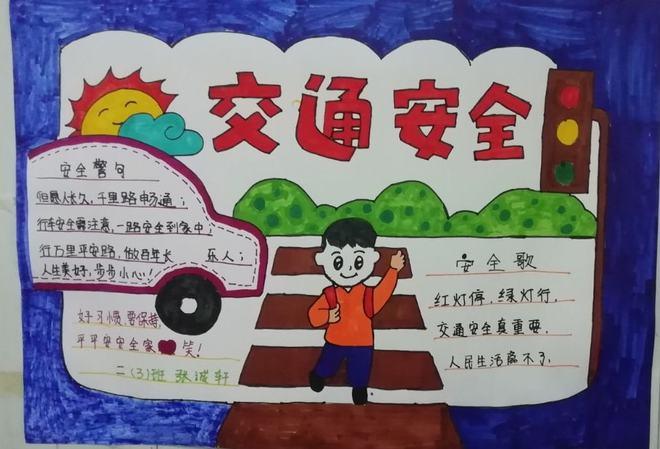 交通安全
安全警句
但愿人长久,千里路畅通;
行车安全需注意,一路安全到家中;
行万里平安路,做百年长 乐人;
人生美好,步步小心!
好习惯,要保持,
平平安安全家 笑!
二(3)班 张诚轩
安全歌
红灯停,绿灯行,
交通安全真重要,
人民生活离不了,